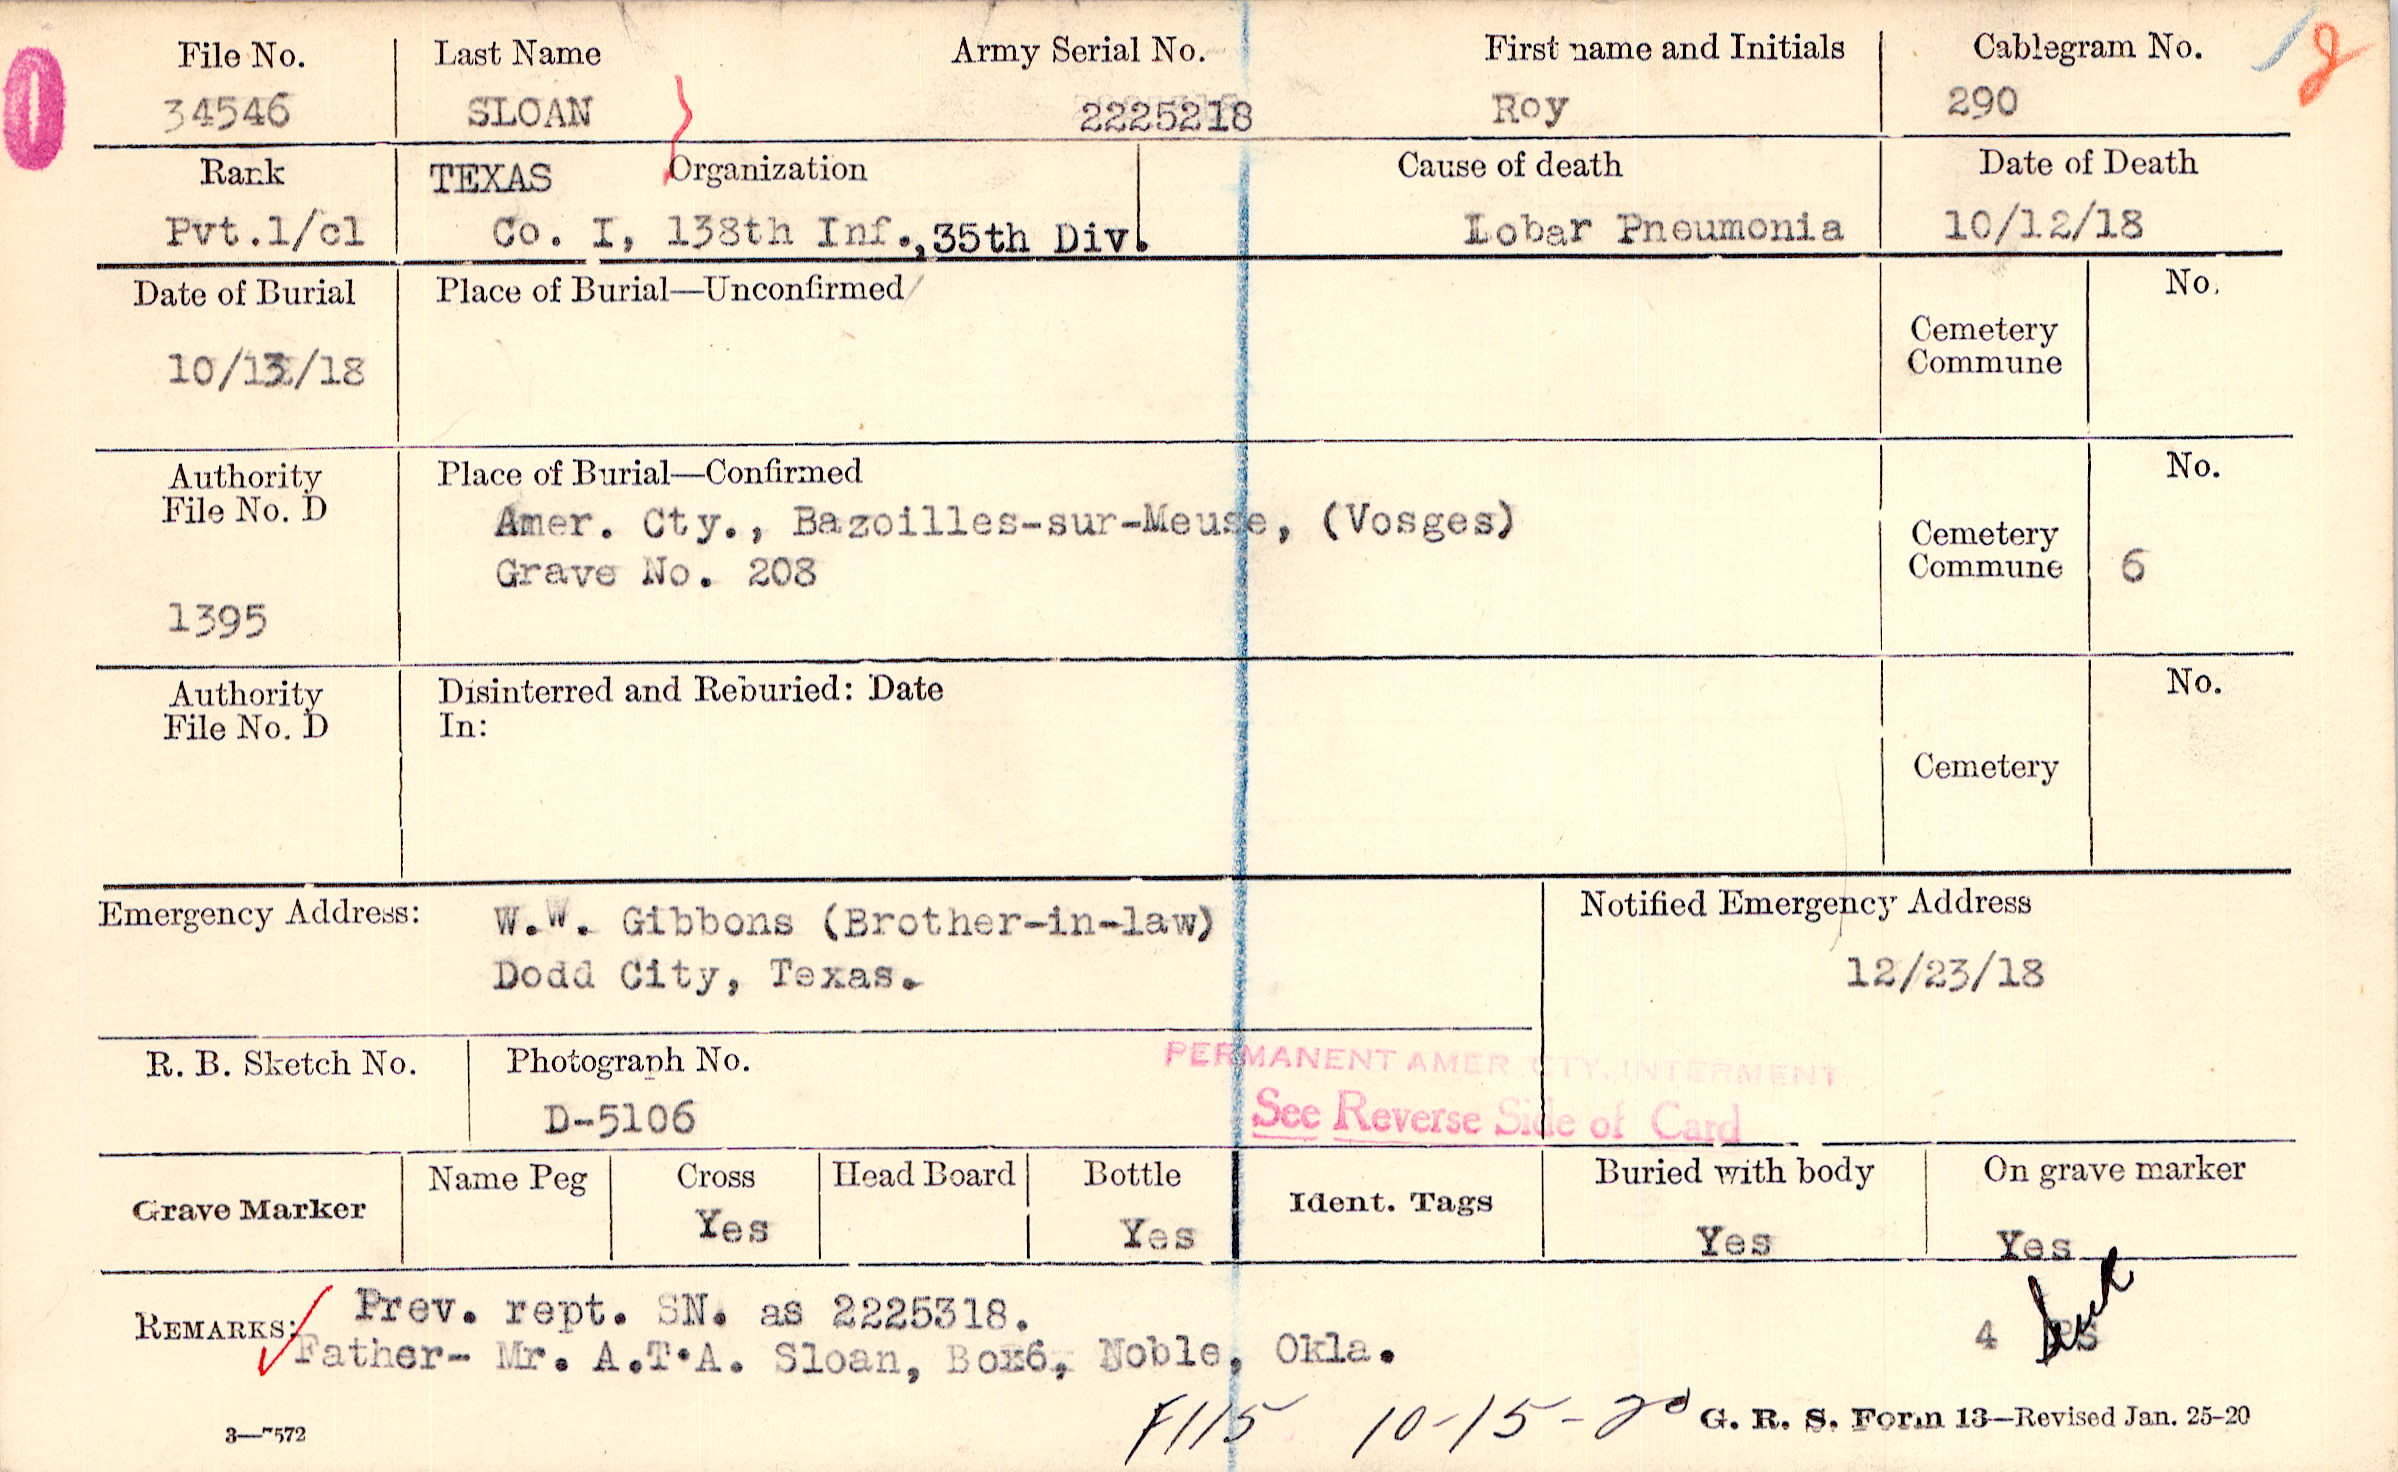 File No. Last Name Army Serial No. First name and Initials Cablegram No.
34546 SLOAN 2225218 Roy 290
Rank TEXAS Organization Cause of death Date of Death
Pvt.1/cl Co. I, 138th Inf.,35th Div. Lobar Pneumonia 10/12/18
Date of Burial Place of Burial—Unconfirmed No.
Cemetery
Commune
10/13/18
Authority Place of Burial—Confirmed No.
File No. D
Amer. Cty., Bazoilles-sur-Meuse, (Vosges)
Grave No. 208
Cemetery
Commune 6
1395
Authority Disinterred and Reburied: Date No.
File No. D In:
Cemetery
Emergency Address: W.W. Gibbons (Brother-in-law)
Dodd City, Texas.
Notified Emergency Address
12/23/18
R. B. Sketch No. Photograph No.
D-5106
PERMANENT AMER. CTY. INTERMENT
See Reverse Side of Card
Grave Marker Name Peg Cross Head Board Bottle Ident. Tags Buried with body On grave marker
Yes Yes Yes Yes
REMARKS: Prev. rept. SN. as 2225318.
Father- Mr. A.T.A. Sloan, Box6, Noble, Okla.
4
F115 10-15-20
3—7572 G. R. S. Form 13—Revised Jan. 25-20